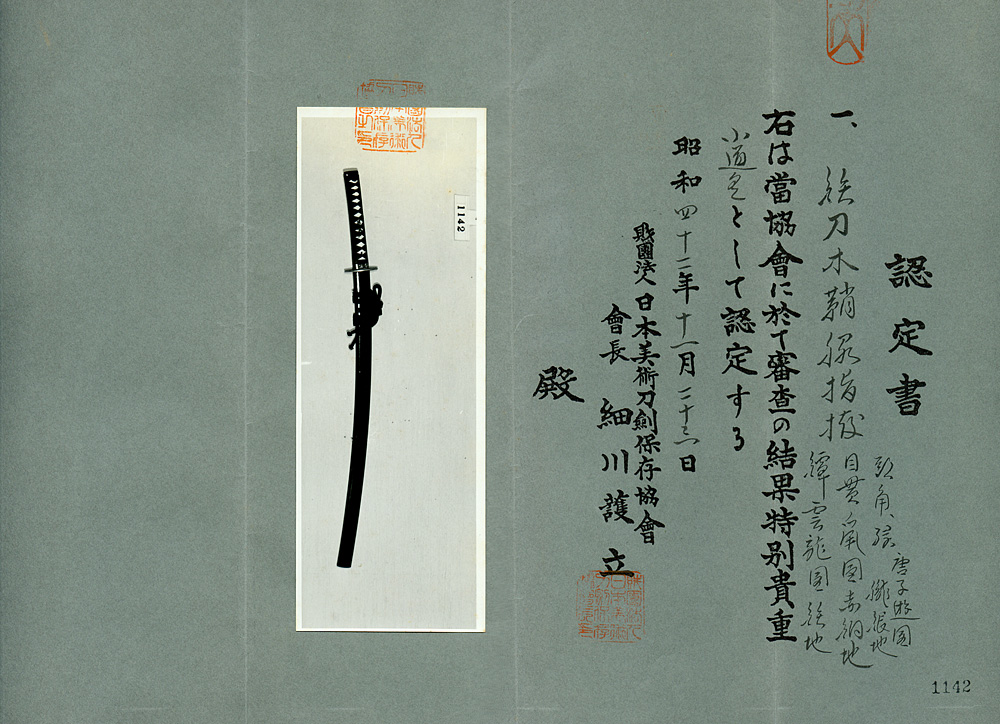 認定書
一、
刀木鞘
頭角、縁 唐子遊図
目貫 図赤銅地
鐔雲龍図鉄地
右は當協會に於て審査の結果特別貴重
小道具として認定する
昭和四十二年十一月二十六日
財團法人日本美術刀劍保存協會
會長 細川護立
殿
1142
1142